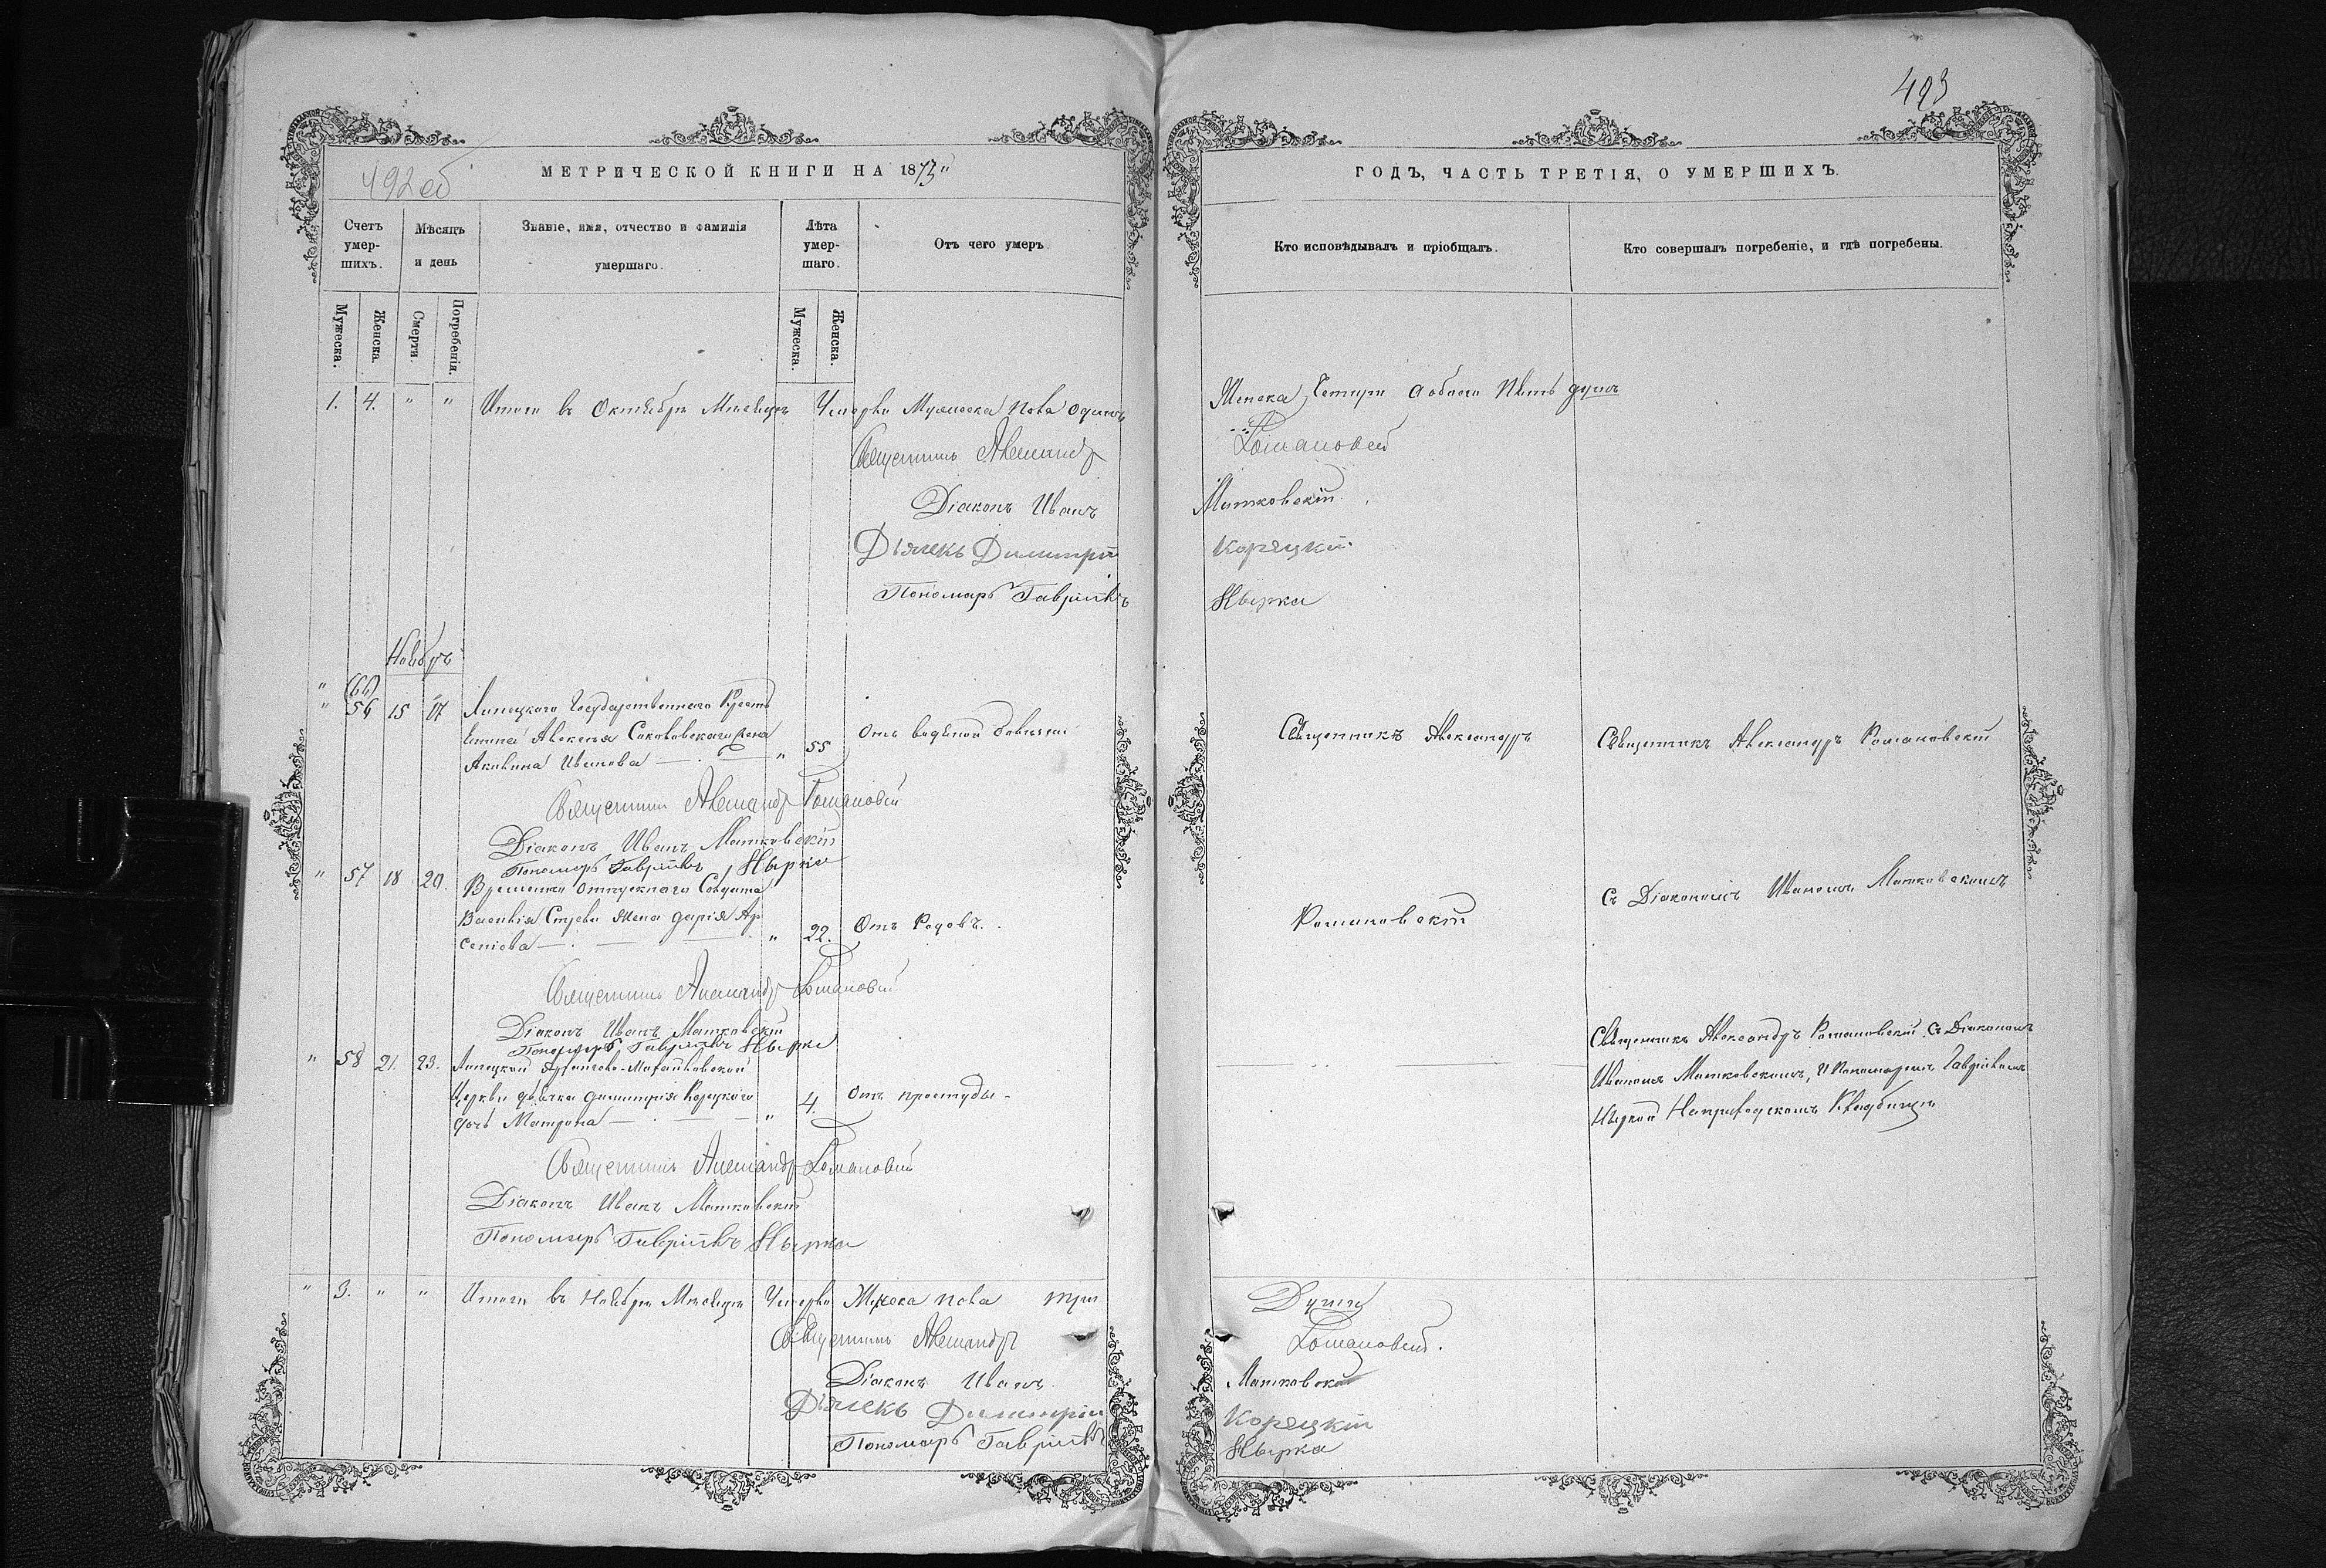 493
492 об
МЕТРИЧЕСКОЙ КНИГИ НА 1873
ГОДЪ, ЧАСТЬ ТРЕТІЯ, О УМЕРШИХЪ.
Счетъ умер-шихъ.
Мѣсяцъ и день
Званіе, имя, отчество и фамилія умершаго.
Лѣта умер-шаго.
Отъ чего умеръ
Кто исповѣдывалъ и пріобщалъ.
Кто совершалъ погребеніе, и гдѣ погребены.
Мужеска. Женска. Смерти. Погребенія. Мужеска. Женска.
1. 4. " " Итого въ Октябрѣ Мѣсяцѣ Умерло Мужеска пола одинъ
Женска Четыри обоего Пять душъ
Священникъ Александръ Романовскій
Діаконъ Иванъ Матковскій
Дьячекъ Димитрій Корецкій
Пономарь Гавріилъ Нырка
Ноябрь
" 56 15 17 Липецкаго Государственнаго Крест
Алексѣя Соколовскаго жена
Акилина Иванова " 55 Отъ водяной болѣзни
Священникъ Александръ
Священникъ Александръ Романовскій
Священникъ Александръ Романовскій
Діаконъ Иванъ Матковскій
Пономарь Гавріилъ Нырка
" 57 18 20. Временно отпускнаго Солдата
Василія жена Дарія Ар
сеніова " 22. Отъ Родовъ.
Романовскій
Съ Діакономъ Иваномъ Матковскимъ
Священникъ Александръ Романовскій
Діаконъ Иванъ Матковскій
Пономарь Гавріилъ Нырка
" 58 21. 23. Липецкой Архангело-Михайловской
Церкви дьячка Димитрія Корецкаго
дочь Матрона " 4. Отъ простуды
Священникъ Александръ Романовскій съ Діакономъ
Иваномъ Матковскимъ, и Пономаремъ Гавріиломъ
Ныркой На приходскомъ Кладбищѣ
Священникъ Александръ Романовскій
Діаконъ Иванъ Матковскій
Пономарь Гавріилъ Нырка
" 3. " " Итого въ Ноябрѣ Мѣсяцѣ Умерло пола три
Души
Священникъ Александръ Романовскій.
Діаконъ Иванъ Матковскій
Дьячекъ Димитрій Корецкій
Пономарь Гавріилъ Нырка